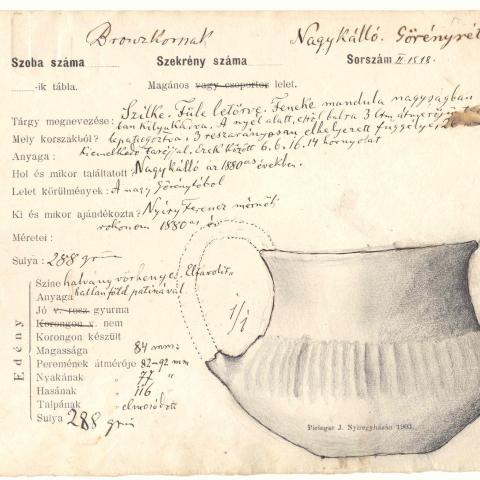 Bronzkornak Nagykálló. Görényrét
Szoba száma Szekrény száma Sorszám II. 1518.
-ik tábla. Magános vagy csoportos lelet.
Tárgy megnevezése: Szilke. Füle letörve. Feneke mandula nagyságban
Mely korszakból? ban kilyukkadva. A nyél alatt, ettől balra 3 ctm. átmérőjű
lepattogozva, 3 részarányosan elhelyezett függélyes
Anyaga: kiemelkedő taréjjal. Ezek között 6. 6. 16. 14 hornyolat
Hol és mikor találtatott? Nagykálló az 1880as években.
Lelet körülmények: A nagy Görénytóból
Ki és mikor ajándékozta? Nyíry Ferencz mérnök
rokonom 1880as év
Méretei:
Sulya: 288 grm
Edény
Színe halvány vörhenyes.
Anyaga kallanföld patinával.
Jó v. rosz gyurma
Korongon v. nem
Korongon készült
Magassága 84 mm.
Peremének átmérője 82-92 mm
Nyakának " 77 "
Hasának " 116
Talpának " elmosódott
Sulya 288 grm
1/1
Piringer J. Nyiregyházán 1903.